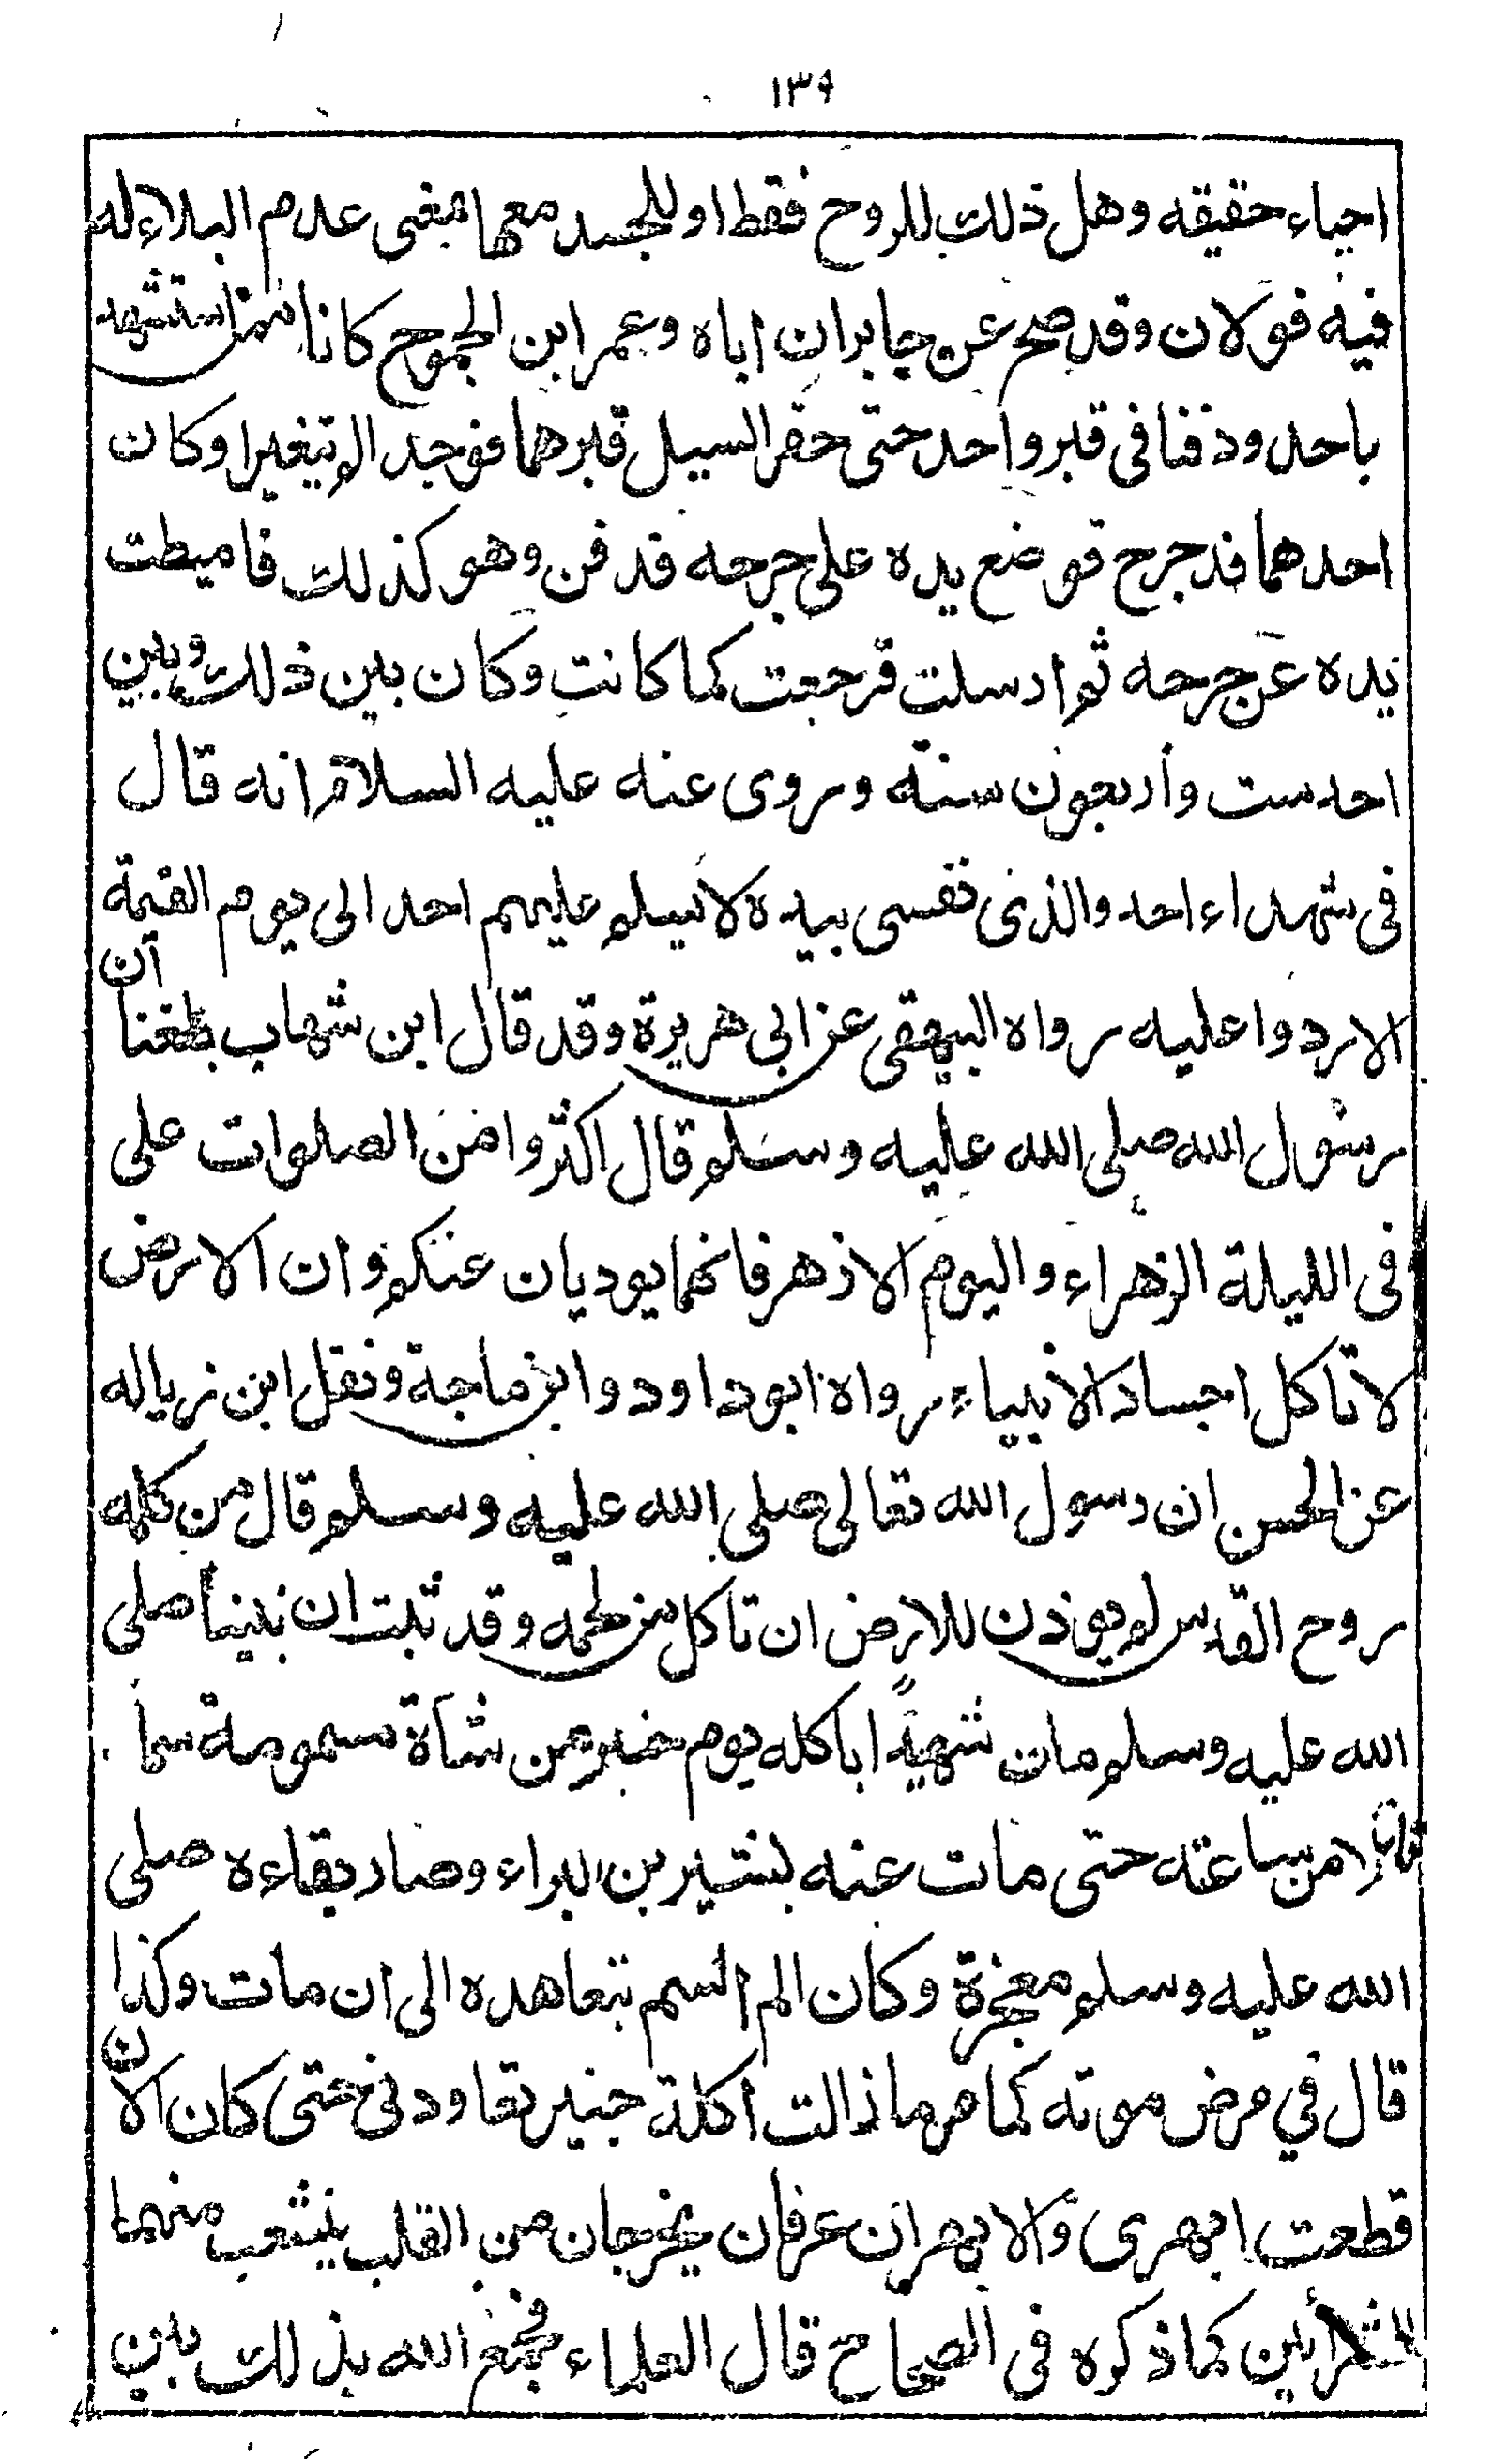 ١٣٩
احياء حقيقه وهل ذلك للروح فقط او للجسد معها بمعنى عدم البلاء له
فيه قولان وقد صح عن جابر ان اباه وعمر ابن الجموح كانا ممن استشهد
باحد ودفنا فى قبر واحد حتى حفر السيل قبرهما فوجدا لم يتغيرا وكان
احدهما قد جرح فوضع يده على جرحه فدفن وهو كذلك فاميطت
يده عن جرحه ثم ارسلت فرجعت كما كانت وكان بين ذلك وبين
احد ست وأربعون سنة وروى عنه عليه السلام انه قال
فى شهداء احد والذى نفسى بيده لا يسلم عليهم احد الى يوم القيمة
الا ردوا عليه رواه البيهقى عن ابى هريرة وقد قال ابن شهاب بلغنا ان
رسول الله صلى الله عليه وسلم قال اكثروا من الصلوات على
فى الليلة الزهراء واليوم الازهر فانهما يوديان عنكم وان الارض
لا تاكل اجساد الانبياء رواه ابو داود وابن ماجة ونقل ابن زياله
عن الحسن ان رسول الله تعالى صلى الله عليه وسلم قال من كلمه
روح القدس لم يوذن للارض ان تاكل من لحمه وقد ثبت ان نبينا صلى
الله عليه وسلم مات شهيدًا باكله يوم خيبر من شاة مسمومة سما
قاتلا من ساعته حتى مات عنه بشير بن البراء وصار بقاءه صلى
الله عليه وسلم معجزة وكان الم السم تتعاهده الى ان مات وكذا
قال في مرض موته كما مر ما زالت اكلة خيبر تعاودنى حتى كان الان
قطعت ابهرى والابهران عرقان يخرجان من القلب يتشعب منهما
الشرأئين كما ذكره فى الصحاح قال العلماء فجمع الله بذلك بين